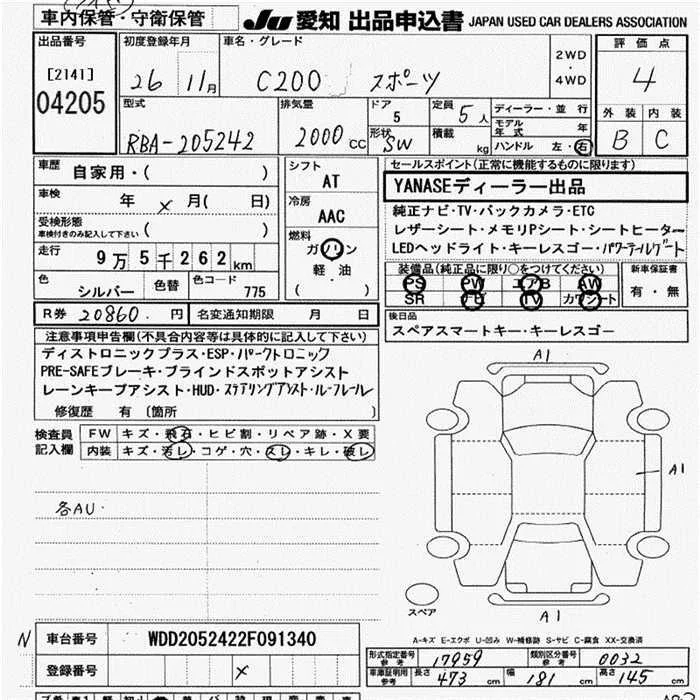 車内保管・守衛保管
JU 愛知 出品申込書 JAPAN USED CAR DEALERS ASSOCIATION
出品番号 [2141] 04205
初度登録年月 26 11月
車名・グレード C200 スポーツ
2WD・4WD
評価点 4
外装 B 内装 C
型式 RBA-205242
排気量 2000 CC
ドア 5
形状 SW
定員 5人
積載 kg
ディーラー・並行
モデル年式 年
ハンドル 左・右
車歴 自家用・( )
車検 年 × 月( 日)
受検形態 車検付きのみ記入して下さい ( )
走行 9万5千262km
色 シルバー 色替 色コード 775
シフト AT
冷房 AAC
燃料 ガソリン 軽・油 ( )
セールスポイント(正常に機能するものに限ります)
YANASEディーラー出品
純正ナビ・TV・バックカメラ・ETC
レザーシート・メモリPシート・シートヒーター
LEDヘッドライト・キーレスゴー・パワーテールゲート
装備品(純正品に限り○をつけてください)
PS PW エアB AW
SR ナビ TV カワシート
新車保証書 有・無
R券 20860.円 名変通知期限 月 日
後日品
スペアスマートキー・キーレスゴー
注意事項申告欄(不具合内容等は具体的に記入して下さい)
ディストロニックプラス・ESP・パークトロニック
PRE-SAFEブレーキ・ブラインドスポットアシスト
レーンキープアシスト・HUD・ステアリングアシスト・ルーフレール
修復歴 有 〔箇所 〕
検査員記入欄
FW キズ・飛石・ヒビ割・リペア跡・X要
内装 キズ・汚レ・コゲ・穴・スレ・キレ・破レ
各AU
A1
A1
A1
スペア
N 車台番号 WDD2052422F091340
登録番号 ×
A-キズ E-エクボ U-凹み W-補修跡 S-サビ C-腐食 XX-交換済
形式指定番号 参考 17959 類別区分番号 参考 0032
車庫証明用 参考 長さ 473 cm 幅 181 cm 高さ 145 cm